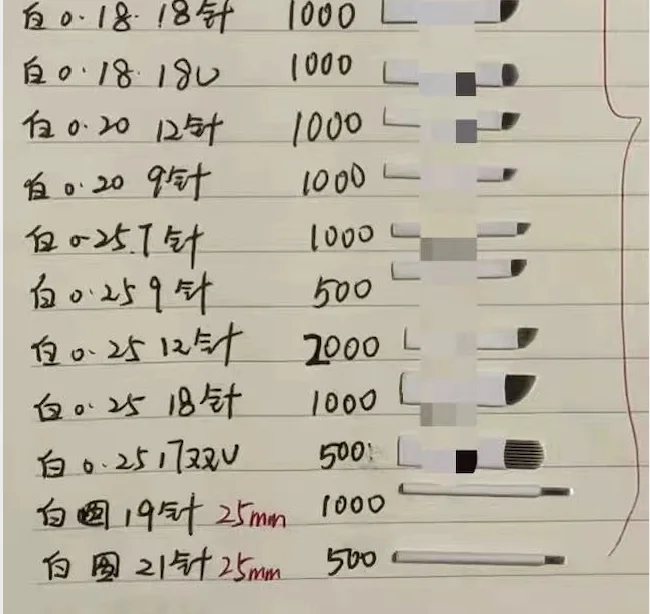 白 0.18. 18针 1000
白 0.18. 18U 1000
白 0.20 12针 1000
白 0.20 9针 1000
白 0.25.7针 1000
白 0.25 9针 500
白 0.25 12针 2000
白 0.25 18针 1000
白 0.25 17双U 500
白 圆 19针 25mm 1000
白 圆 21针 25mm 500